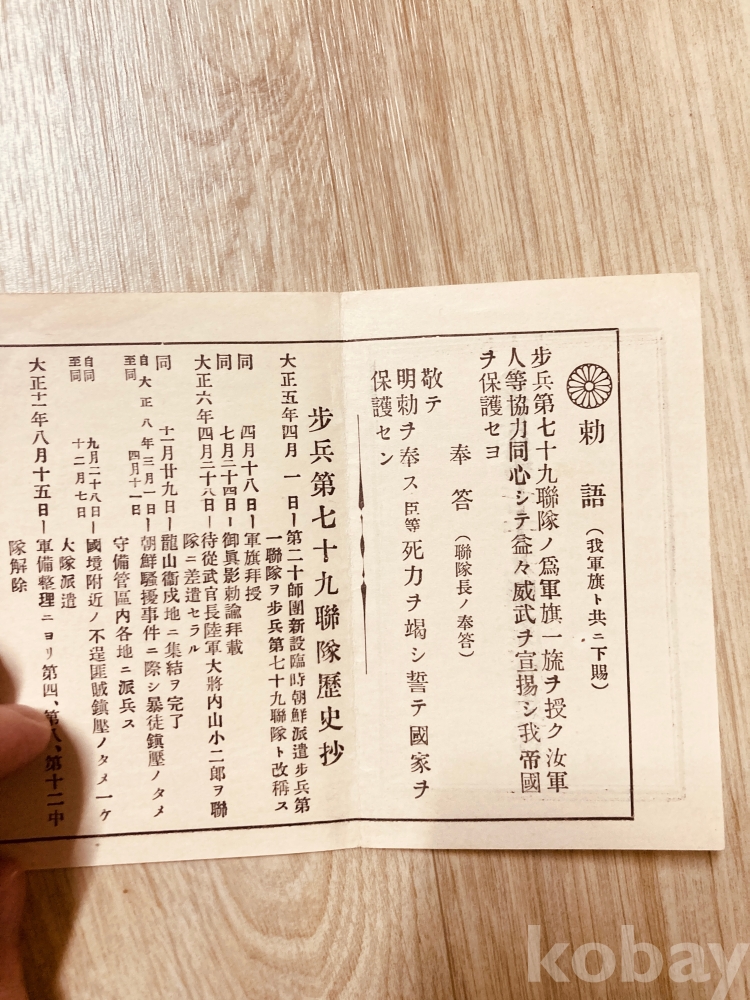 勅語(我軍旗ト共ニ下賜)
步兵第七十九聯隊ノ爲軍旗一旒ヲ授ク汝軍
人等協力同心シテ益々威武ヲ宣揚シ我帝國
ヲ保護セヨ
奉答(聯隊長ノ奉答)
敬テ
明勅ヲ奉ス臣等死力ヲ竭シ誓テ國家ヲ
保護セン
步兵第七十九聯隊歷史抄
大正五年四月一日ー第二十師團新設臨時朝鮮派遣步兵第
一聯隊ヲ步兵第七十九聯隊ト改稱ス
同 四月十八日ー軍旗拜授
同 七月二十四日ー御眞影勅諭拜載
大正六年四月二十八日ー待從武官長陸軍大將內山小二郎ヲ聯
隊ニ差遣セラル
同 十二月廿九日ー龍山衞戍地ニ集結ヲ完了
自大正八年三月一日
至同 四月十一日ー朝鮮騷擾事件ニ際シ暴徒鎭壓ノタメ
守備管區內各地ニ派兵ス
自同 九月二十八日
至同 十二月七日ー國境附近ノ不逞匪賊鎭壓ノタメ一ケ
大隊派遣
大正十一年八月十五日ー軍備整理ニヨリ第四、第八、第十二中
隊解除
kobay